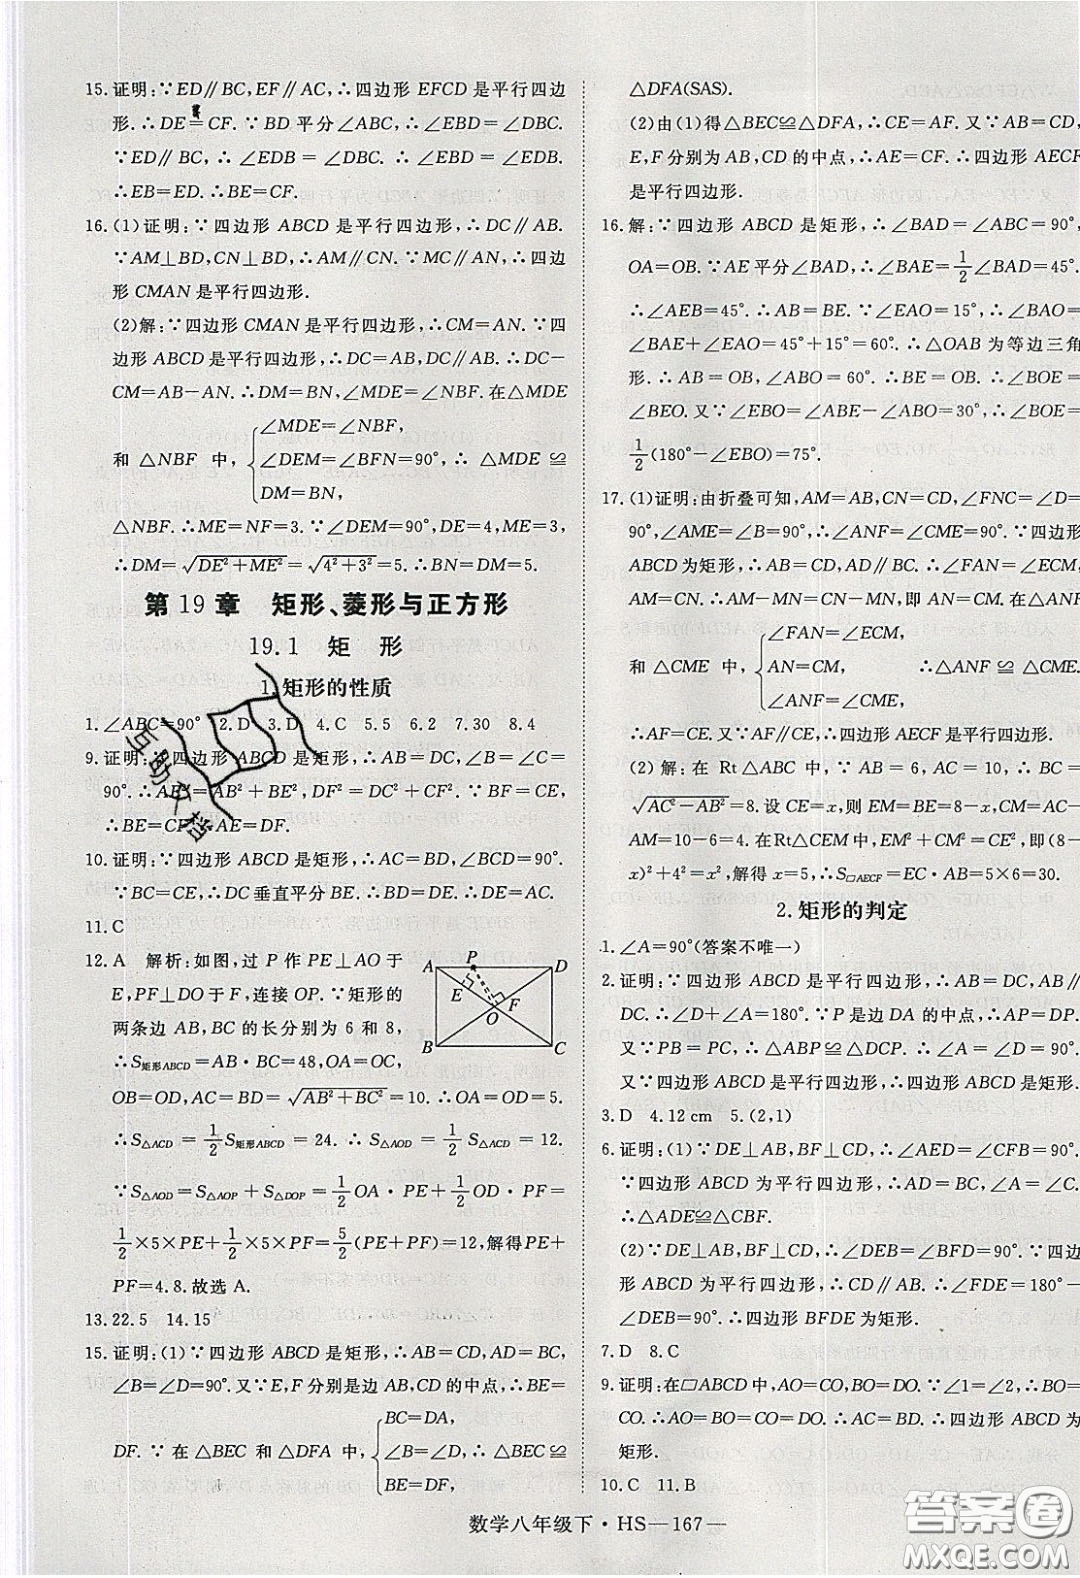 15. 证明:∵ED∥BC,EF∥AC,∴四边形 EFCD 是平行四边
形.∴DE=CF.∵BD 平分∠ABC,∴∠EBD=∠DBC.
∵ED∥BC,∴∠EDB=∠DBC,∴∠EBD=∠EDB.
∴EB=ED.∴BE=CF.
16. (1)证明:∵四边形 ABCD 是平行四边形,∴DC∥AB.
∵AM⊥BD,CN⊥BD,∴AM∥CN.∵MC∥AN,∴四边
形 CMAN 是平行四边形.
(2)解:∵四边形 CMAN 是平行四边形,∴CM=AN.∵四
边形 ABCD 是平行四边形,∴DC=AB,DC∥AB.∴DC-
CM=AB-AN.∴DM=BN,∠MDE=∠NBF.在△MDE
和 △NBF 中, {∠MDE=∠NBF,
∠DEM=∠BFN=90°, ∴△MDE ≌
DM=BN,
△NBF.∴ME=NF=3.∵∠DEM=90°,DE=4,ME=3,
∴DM=√(DE²+ME²)=√(4²+3²)=5.∴BN=DM=5.
第 19 章 矩形、菱形与正方形
19.1 矩 形
1. 矩形的性质
1. ∠ABC=90° 2. D 3. D 4. C 5. 5 6. 2 7. 30 8. 4
9. 证明:∵四边形 ABCD 是矩形,∴AB=DC,∠B=∠C=
90°.∴AE²=AB²+BE²,DF²=DC²+CF².∵BF=CE,
∴BE=CF.∴AE=DF.
10. 证明:∵四边形 ABCD 是矩形,∴AC=BD,∠BCD=90°.
∵BC=CE,∴DC 垂直平分 BE.∴BD=DE.∴DE=AC.
11. C
12. A 解析:如图,过 P 作 PE⊥AO 于
E,PF⊥DO 于 F,连接 OP.∵矩形的
两条边 AB,BC 的长分别为 6 和 8,
∴S矩形ABCD=AB·BC=48,OA=OC,
OB=OD,AC=BD=√(AB²+BC²)=10.∴OA=OD=5.
∴S△ACD=1/2 S矩形ABCD=24.∴S△AOD=1/2 S△ACD=12.
∵S△AOD=S△AOP+S△DOP=1/2 OA·PE+1/2 OD·PF=
1/2×5×PE+1/2×5×PF=5/2(PE+PF)=12,解得PE+
PF=4.8.故选 A.
A P D
E F
O
B C
13. 22.5 14. 15
15. 证明:(1)∵四边形 ABCD 是矩形,∴AB=CD,AD=BC,
∠B=∠D=90°.又∵E,F分别是边 AB,CD 的中点,∴BE=
DF.∵ 在 △BEC 和 △DFA 中, {BC=DA,
∠B=∠D, ∴△BEC≌
BE=DF,
△DFA(SAS).
(2)由(1)得△BEC≌△DFA,∴CE=AF.又∵AB=CD,
E,F分别为 AB,CD 的中点,∴AE=CF.∴四边形 AECF
是平行四边形.
16. 解:∵四边形 ABCD 是矩形,∴∠BAD=∠ABC=90°,
OA=OB.∵AE 平分∠BAD,∴∠BAE=1/2∠BAD=45°.
∴∠AEB=45°.∴AB=BE.∵∠EAO=15°,∴∠BAO=
∠BAE+∠EAO=45°+15°=60°.∴△OAB 为等边三角
形.∴AB=OB,∠ABO=60°.∴BE=OB.∴∠BOE=
∠BEO.又∵∠EBO=∠ABE-∠ABO=30°,∴∠BOE=
1/2(180°-∠EBO)=75°.
17. (1)证明:由折叠可知,AM=AB,CN=CD,∠FNC=∠D=
90°,∠AME=∠B=90°,∴∠ANF=∠CME=90°.∵四边
形 ABCD 是矩形,∴AB=CD,AD∥BC.∴AM=CN,
∴AM-MN=CN-MN,即 AN=CM.在 △ANF
和 △CME 中, {∠FAN=∠ECM,
AN=CM, ∴△ANF ≌ △CME.
∠ANF=∠CME,
∴AF=CE.又∵AF∥CE,∴四边形 AECF 是平行四边形.
(2)解:在 Rt△ABC 中,∵AB=6,AC=10,∴BC=
√(AC²-AB²)=8.设 CE=x,则 EM=BE=8-x,CM=AC-
AM=10-6=4.在Rt△CEM 中,EM²+CM²=CE²,即(8-
x)²+4²=x²,解得 x=5.∴S▱AECF=EC·AB=5×6=30.
2. 矩形的判定
1. ∠A=90°(答案不唯一)
2. 证明:∵四边形 ABCD 是平行四边形,∴AB=DC,AB∥
DC.∴∠D+∠A=180°.∵P是边 DA 的中点,∴AP=DP.
又∵PB=PC,∴△ABP≌△DCP.∴∠A=∠D=90°.
又∵四边形 ABCD 是平行四边形,∴四边形 ABCD 是矩形.
3. D 4. 12 cm 5. (2,1)
6. 证明:(1)∵DE⊥AB,BF⊥CD,∴∠AED=∠CFB=90°.
∵四边形 ABCD 为平行四边形,∴AD=BC,∠A=∠C.
∴△ADE≌△CBF.
(2)∵DE⊥AB,BF⊥CD,∴∠DEB=∠BFD=90°.∵四边
形 ABCD 为平行四边形,∴CD∥AB.∴∠FDE=180°-
∠DEB=90°.∴四边形 BFDE 为矩形.
7. D 8. C
9. 证明:在▱ABCD 中,AO=CO,BO=DO.∵∠1=∠2,∴BO=
CO.∴AO=BO=CO=DO.∴AC=BD.∴四边形 ABCD 为
矩形.
10. C 11. B
数学八年级下·HS—167—
互助文档
答案圈
MXQE.COM